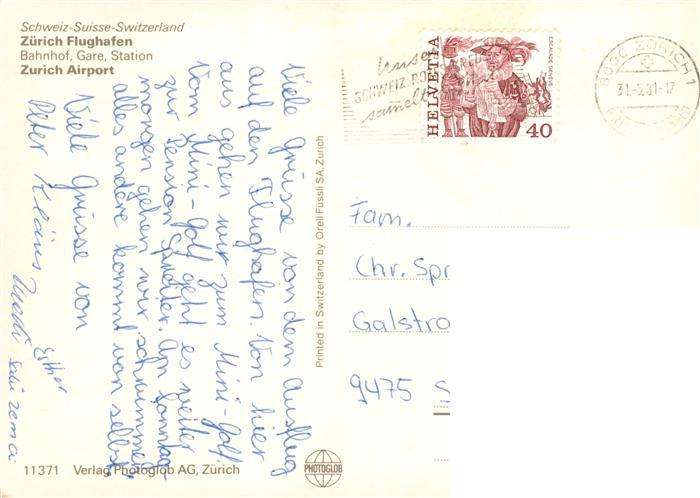 Schweiz-Suisse-Switzerland
Zürich Flughafen
Bahnhof, Gare, Station
Zurich Airport
Viele Grüsse von dem Ausflug
auf den Flughafen. Von hier
aus gehen wir zum Mini-Golf.
Vom Mini-Golf geht es weiter
zur Pension Spreiter. Am Sonntag-
morgen gehen wir schwimmen
alles andere kommt von selbst.
Viele Grüsse von
Peter Klaus Ruedi
Esther
11371 Verlag Photoglob AG, Zürich
PHOTOGLOB
Printed in Switzerland by Orell Füssli SA, Zurich
SCHWEIZ.
HELVETIA
ESCALADE GENÈVE
40
8000 ZÜRICH 1
Fam.
Chr. Spr
Galstra
9475 S